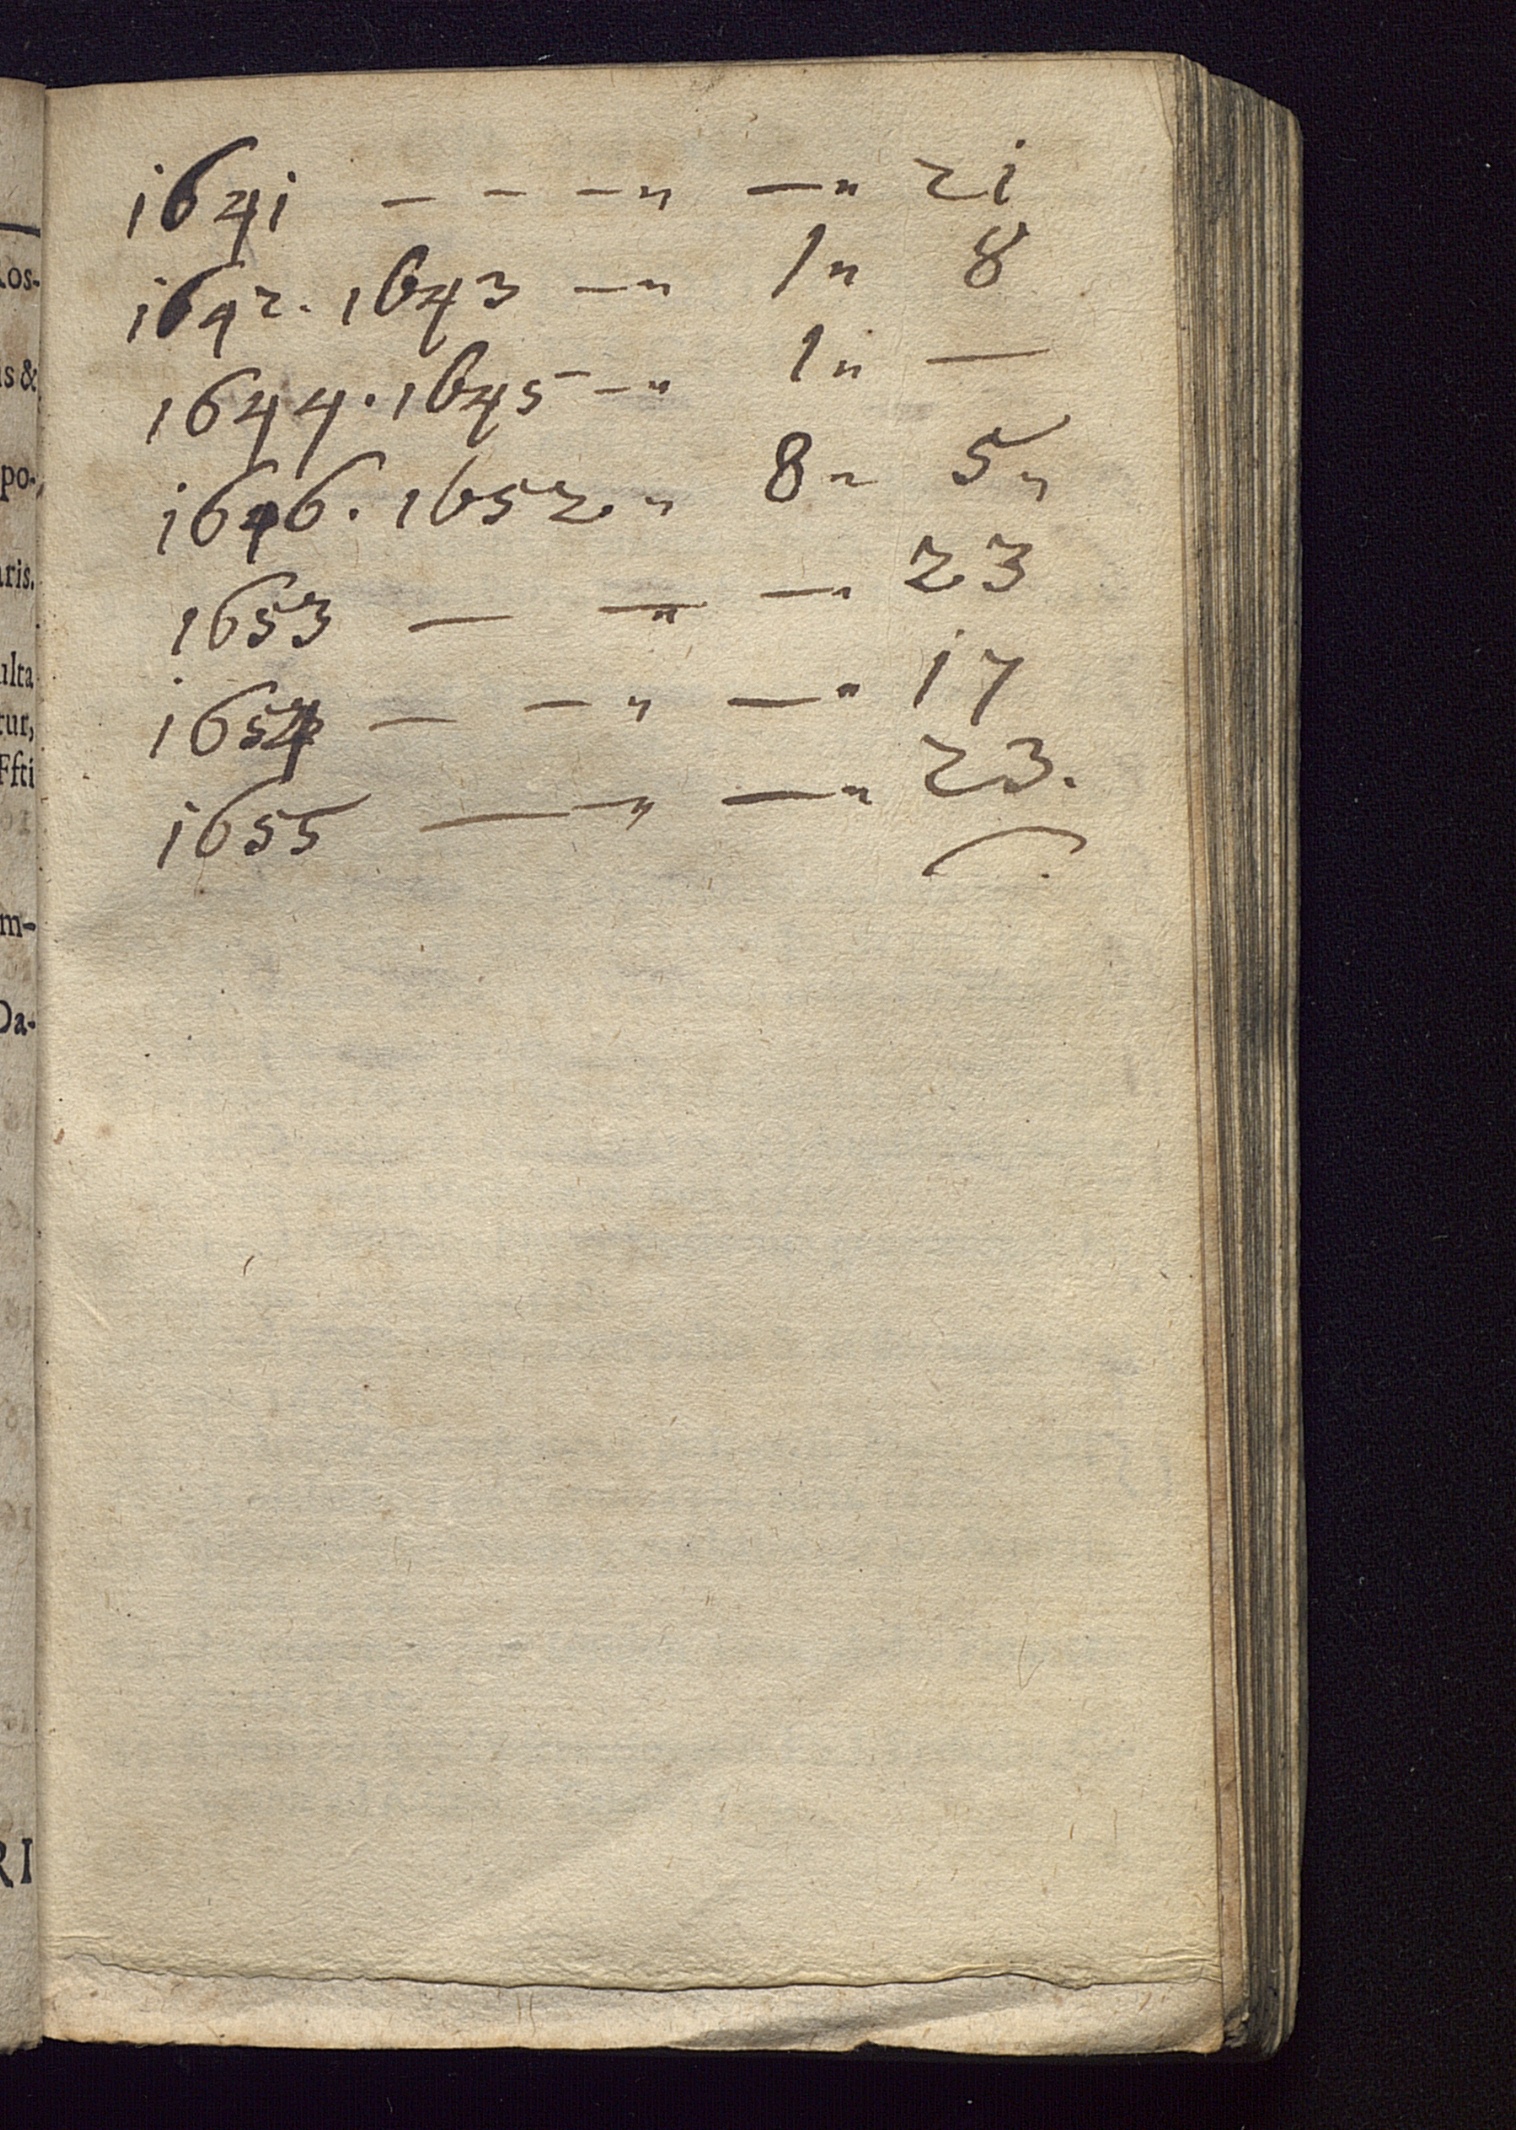 1641 — — —„ —„ 21
1642. 1643 —„ 1„ 8
1644. 1645 —„ 1„ —
1646. 1652. „ 8„ 5„
1653 — —„ —„ 23
1654 — —„ —„ 17
1655 — —„ —„ 23.
os-
is &
po-
aris.
ulta
tur,
Ffti
m-
Da-
RI